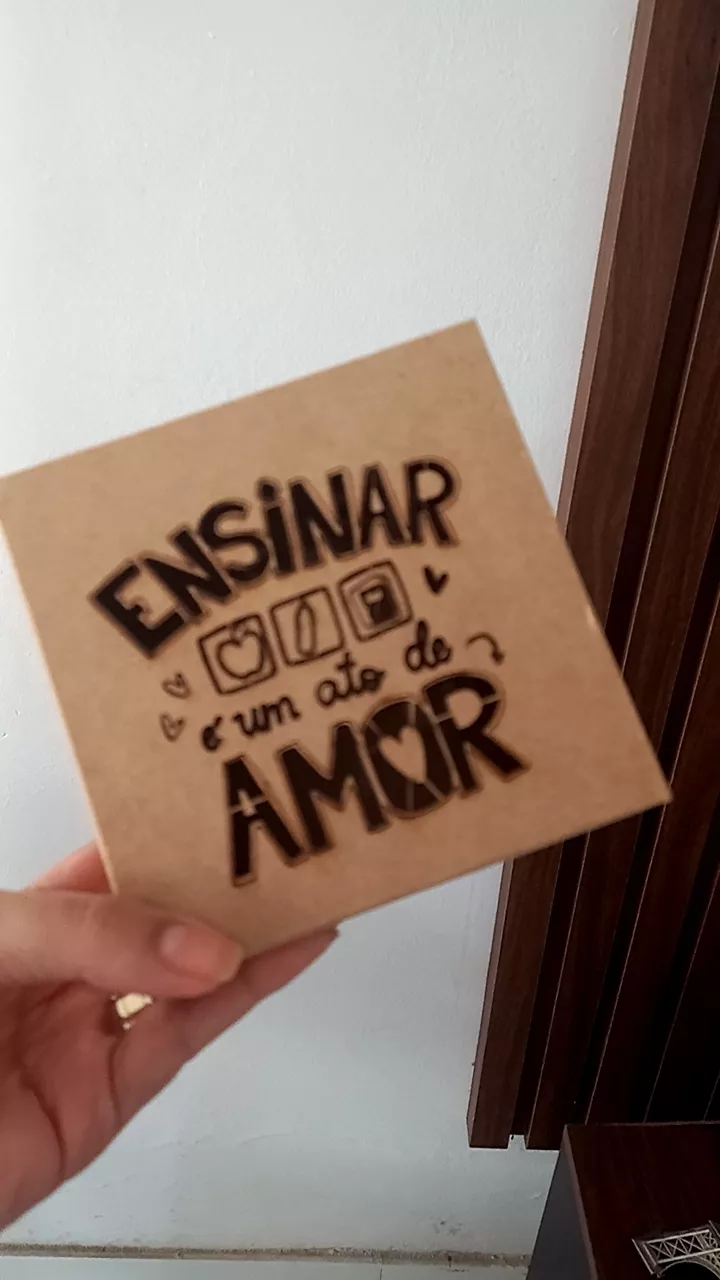 ENSiNAR
é um ato de
AMOR